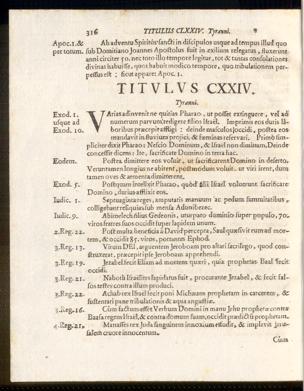 316 TITULUS CLXXIV. Tyranni.
Apoc. 1. & Ab adventu Spiritus sancti in discipulos usque ad tempus illud quo
per totum. sub Domitiano Joannes Apostolus fuit in exilium relegatus, fluxerunt
anni circiter 50. nec toto illo tempore legitur, tot & tantas consolationes
divinas habuisse, quot habuit modico tempore, quo tribulationem per-
pessus est; sicut apparet Apoc. 1.
TITULVS CXXIV.
Tyranni.
Exod. 1. VArias adinvenit nequitias Pharao, ut posset extinguere, vel ad
usque ad numerum parvum redigere filios Israel. Imprimis eos duris la-
Exod. 10. boribus præcepit affligi: deinde masculos occidi, postea eos
mandavit in fluvium projici, & fœminas reservari. Primò sim-
pliciter dixit Pharao: Nescio Dominum, & Israel non dimittam. Deinde
concessit dicens: Ite, sacrificate Domino in terra hac.
Eodem. Postea dimittere eos voluit, ut sacrificarent Domino in deserto.
Veruntamen longius ne abirent, postmodum voluit, ut viri irent, dum
tamen oves & armenta dimitterent.
Exod. 5. Postquam intellexit Pharao, quod filii Israel voluntant sacrificare
Domino, durius afflixit eos.
Iudic. 1. Septuaginta reges, amputatis manuum ac pedum summitatibus,
colligebant reliquias sub mensa Adonibezec.
Iudic. 9. Abimelech filius Gedeonis, usurpato dominio super populo, 70.
viros fratres suos occidit super lapidem unum.
2. Reg. 22. Post multa beneficia à David percepta, Saul quæsivit eum ad mor-
tem, & occidit 85. viros, portantes Ephod.
3. Reg. 13. Virum DEI, arguentem Jeroboam pro altari sacrilego, quod con-
struxerat, præcepit ipse Jeroboam apprehendi.
3. Reg. 19. Jezabel fecit Eliam ad mortem quæri, quia prophetas Baal fecit
occidi.
3. Reg. 21. Naboth Israelites lapidatus fuit, procurante Jezabel, & fecit fal-
sos testes contra illum produci.
3. Reg. 22. Achab rex Israel fecit poni Michæam prophetam in carcerem, &
sustentari pane tribulationis & aqua angustiæ.
3. Reg. 16. Cum factum esset Verbum Domini in manu Jehu prophetæ contra
Baasa regem Israel, & contra domum suam, occidit prædictus prophetam.
4. Reg. 21. Manasses rex Juda sanguinem innoxium effudit, & implevit Jeru-
salem cruore innocentum.
Cùm